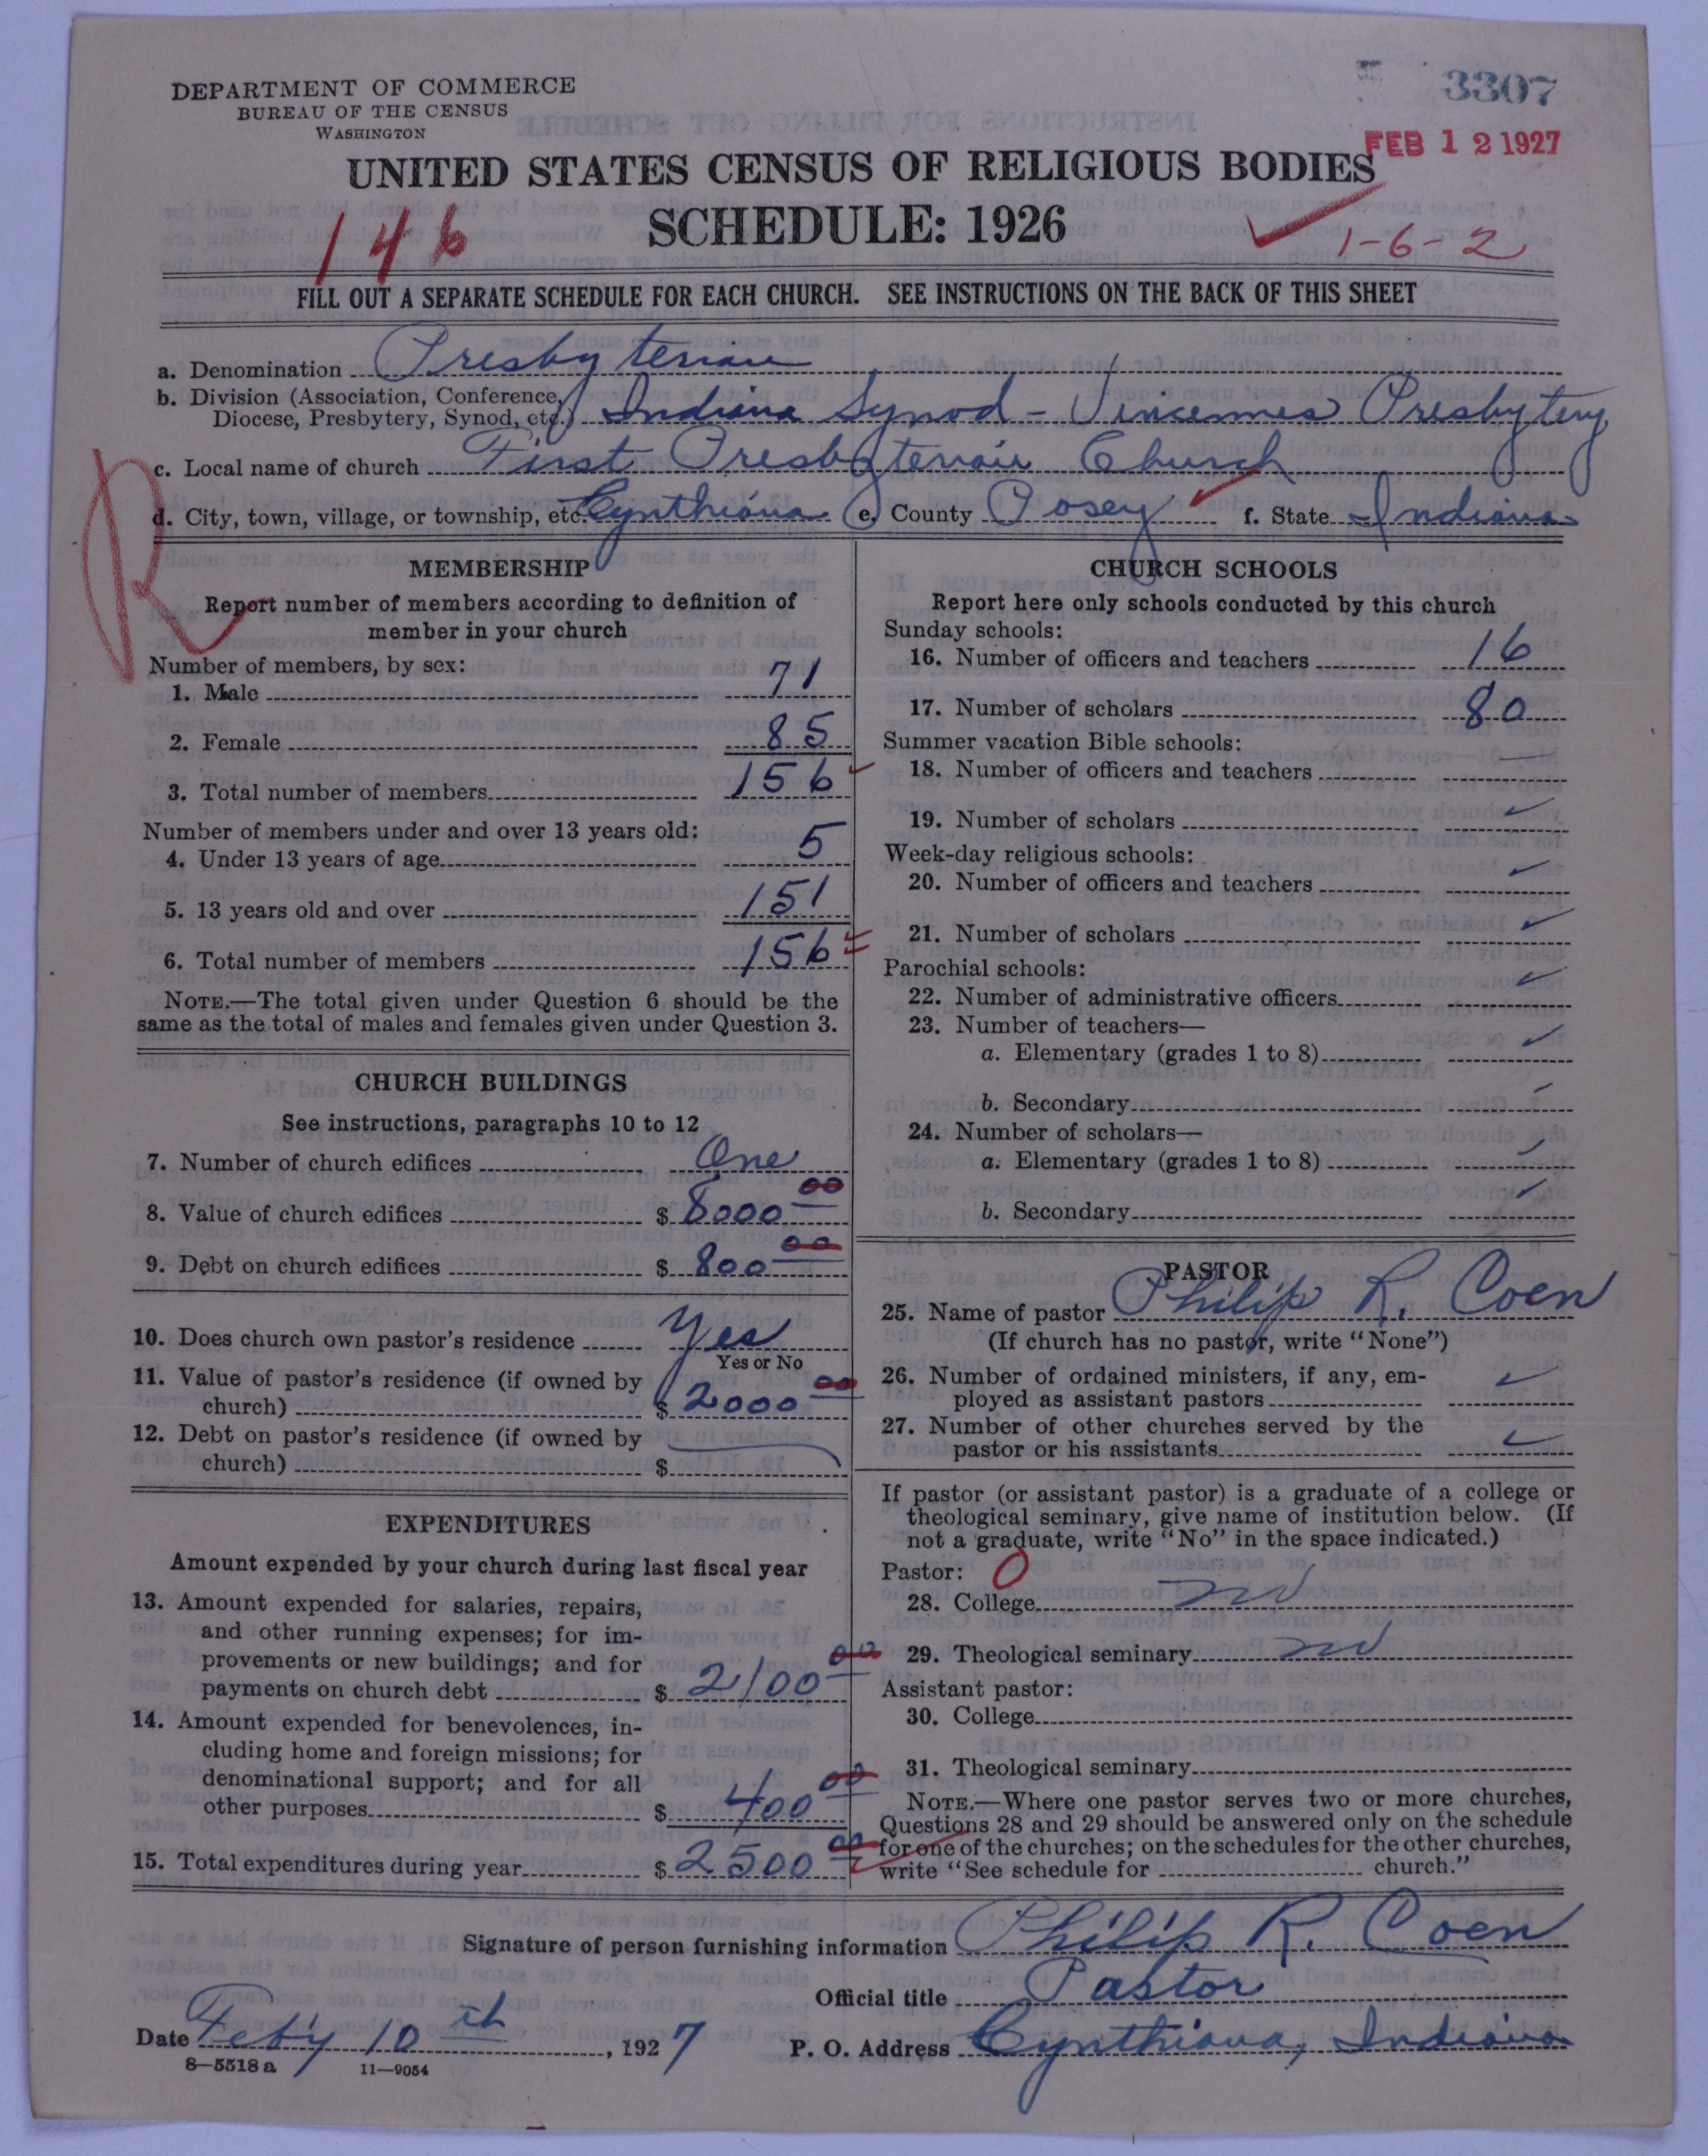 DEPARTMENT OF COMMERCE
BUREAU OF THE CENSUS
WASHINGTON
3307
FEB 12 1927
UNITED STATES CENSUS OF RELIGIOUS BODIES
SCHEDULE: 1926
146
1-6-2
FILL OUT A SEPARATE SCHEDULE FOR EACH CHURCH. SEE INSTRUCTIONS ON THE BACK OF THIS SHEET
a. Denomination Presbyterian
b. Division (Association, Conference,
Diocese, Presbytery, Synod, etc.) Indiana Synod - Vincennes Presbytery
c. Local name of church First Presbyterian Church
d. City, town, village, or township, etc. Cynthiana e. County Posey f. State Indiana
R
MEMBERSHIP
Report number of members according to definition of
member in your church
Number of members, by sex:
1. Male 71
2. Female 85
3. Total number of members 156
Number of members under and over 13 years old:
4. Under 13 years of age 5
5. 13 years old and over 151
6. Total number of members 156
NOTE.—The total given under Question 6 should be the
same as the total of males and females given under Question 3.
CHURCH BUILDINGS
See instructions, paragraphs 10 to 12
7. Number of church edifices One
8. Value of church edifices $ 8000 00
9. Debt on church edifices $ 800 00
10. Does church own pastor's residence Yes
Yes or No
11. Value of pastor's residence (if owned by
church) $ 2000 00
12. Debt on pastor's residence (if owned by
church) $
EXPENDITURES
Amount expended by your church during last fiscal year
13. Amount expended for salaries, repairs,
and other running expenses; for im-
provements or new buildings; and for
payments on church debt $ 2100 00
14. Amount expended for benevolences, in-
cluding home and foreign missions; for
denominational support; and for all
other purposes $ 400 00
15. Total expenditures during year $ 2500 00
CHURCH SCHOOLS
Report here only schools conducted by this church
Sunday schools:
16. Number of officers and teachers 16
17. Number of scholars 80
Summer vacation Bible schools:
18. Number of officers and teachers
19. Number of scholars
Week-day religious schools:
20. Number of officers and teachers
21. Number of scholars
Parochial schools:
22. Number of administrative officers
23. Number of teachers—
a. Elementary (grades 1 to 8)
b. Secondary
24. Number of scholars—
a. Elementary (grades 1 to 8)
b. Secondary
PASTOR
25. Name of pastor Philip R. Coen
(If church has no pastor, write "None")
26. Number of ordained ministers, if any, em-
ployed as assistant pastors
27. Number of other churches served by the
pastor or his assistants
If pastor (or assistant pastor) is a graduate of a college or
theological seminary, give name of institution below. (If
not a graduate, write "No" in the space indicated.)
Pastor: 0
28. College no
29. Theological seminary no
Assistant pastor:
30. College
31. Theological seminary
NOTE.—Where one pastor serves two or more churches,
Questions 28 and 29 should be answered only on the schedule
for one of the churches; on the schedules for the other churches,
write "See schedule for church."
Signature of person furnishing information Philip R. Coen
Official title Pastor
Date Feby 10th, 1927 P. O. Address Cynthiana, Indiana
8—5518 a 11—9054